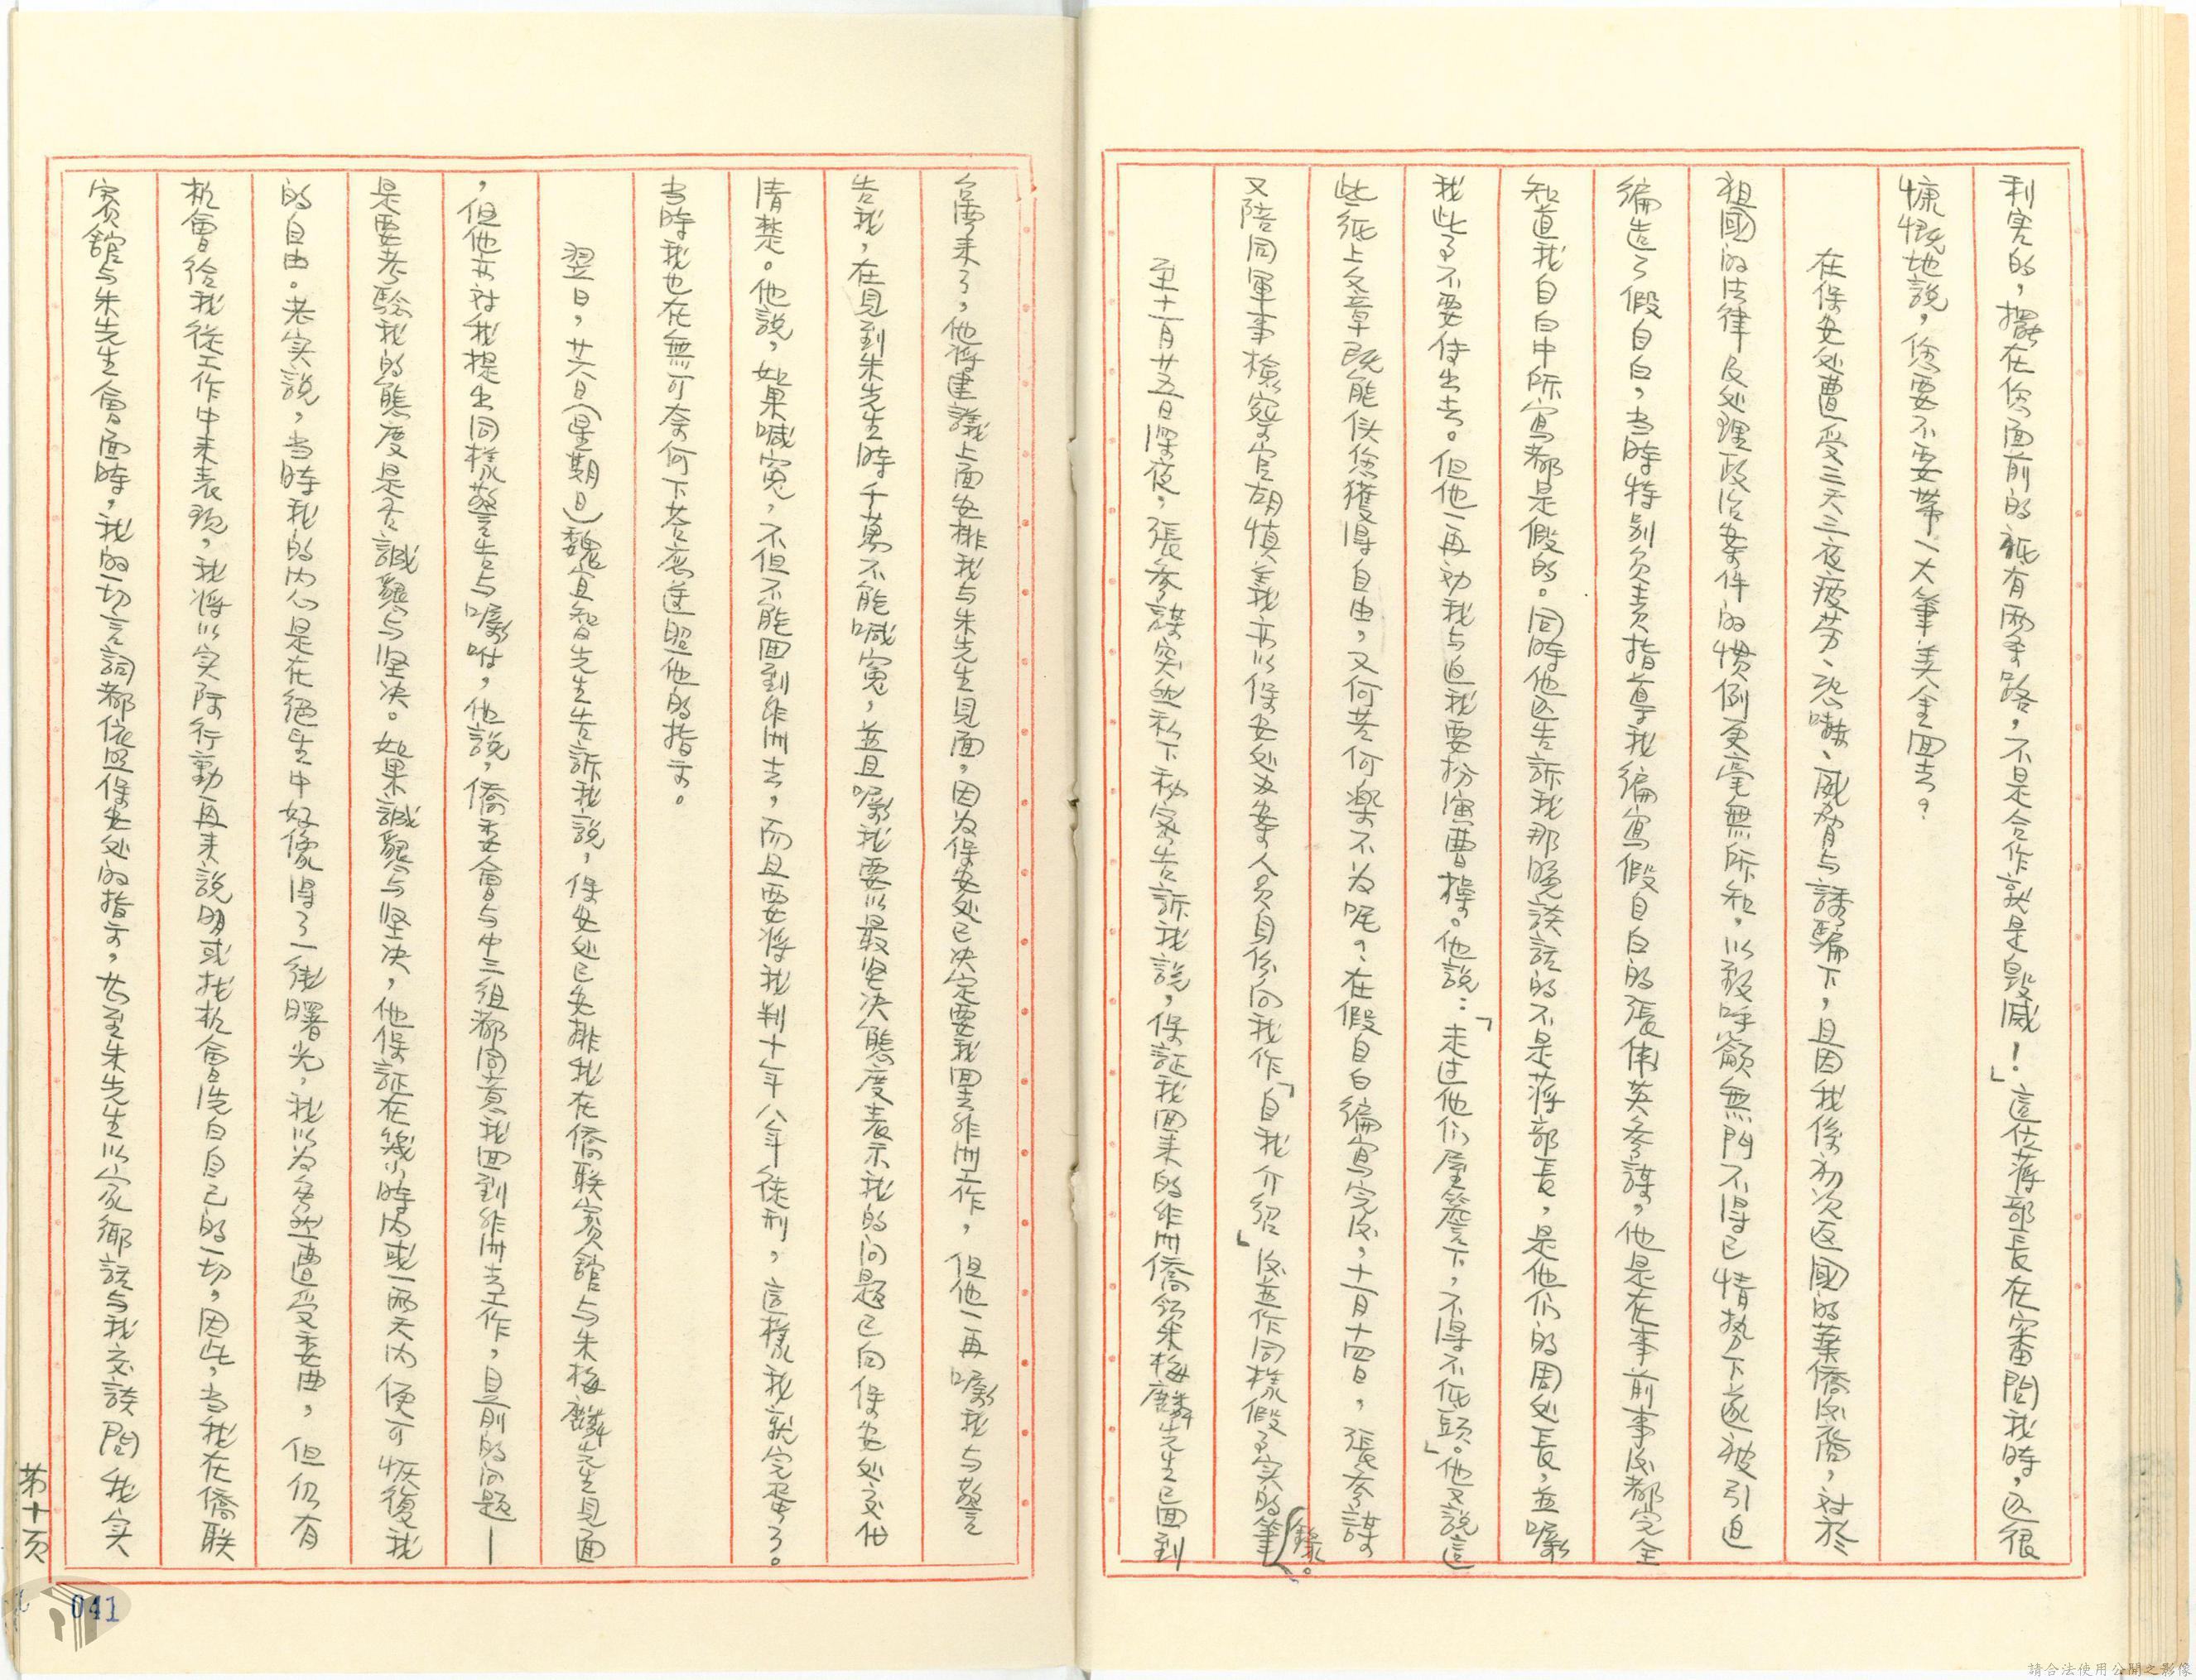 利害的，擺在您面前的祇有兩条路，不是合作就是毀滅！」這位蔣部長在審問我時，还很
慷慨地說，您要不要帶一大筆美金回去？
在保安处遭受三天三夜疲劳、恐嚇、威脅与誘騙下，且因我係初次返國的華僑后裔，对於
祖國的法律及处理政治案件的慣例更毫無所知，以致呼籲無門不得已情势下遂被引迫
編造了假自白，当時特别负责指導我編寫假自白的張偉英参謀，他是在事前事后都完全
知道我自白中所寫都是假的。同時他还告訴我那晚談話的不是蔣部長，是他们的周处長，並囑
我此事不要传出去。但他一再劝我与迫我要扮演曹操。他說：「走过他们屋簷下，不得不低頭。」他又說這
些纸上文章既能使您獲得自由，又何苦何樂不为呢？在假自白編寫完后，十一月十四日，張参謀
又陪同軍事檢察官胡慎美我亦以保安处办案人员身份向我作「自我介紹」后並作同樣假事实的筆錄。
至十一月廿五日深夜，張参謀突然私下秘密告訴我說，保証我回来的非洲僑領朱梅麟先生已回到
台灣来了，他将建議上面安排我与朱先生見面，因为保安处已决定要我回去非洲工作，但他一再囑我与警
告我，在見到朱先生時千萬不能喊冤，並且囑我要以最坚决態度表示我的问题已向保安处交代
清楚。他說，如果喊冤，不但不能回到非洲去，而且要将我判十年八年徒刑，這樣我就完蛋了。
当時我也在無可奈何下答应遵照他的指示。
翌日，廿六日（星期日）魏宜智先生告訴我說，保安处已安排我在僑联賓舘与朱梅麟先生見面
，但他亦对我提出同樣警告与囑咐，他說，僑委會与中三組都同意我回到非洲去工作，目前的问题—
是要考驗我的態度是否誠懇与坚决。如果誠懇与坚决，他保証在幾小時内或一兩天内便可恢復我
的自由。老实說，当時我的内心是在絕望中好像得了一线曙光，我以为虽然遭受委曲，但仍有
机會给我從工作中来表現，我将以实际行動再来說明或找机會洗白自己的一切，因此，当我在僑联
賓舘与朱先生會面時，我的一切言詞都依照保安处的指示，甚至朱先生以家鄉話与我交談問我实
第十页
041
請合法使用公開之影像